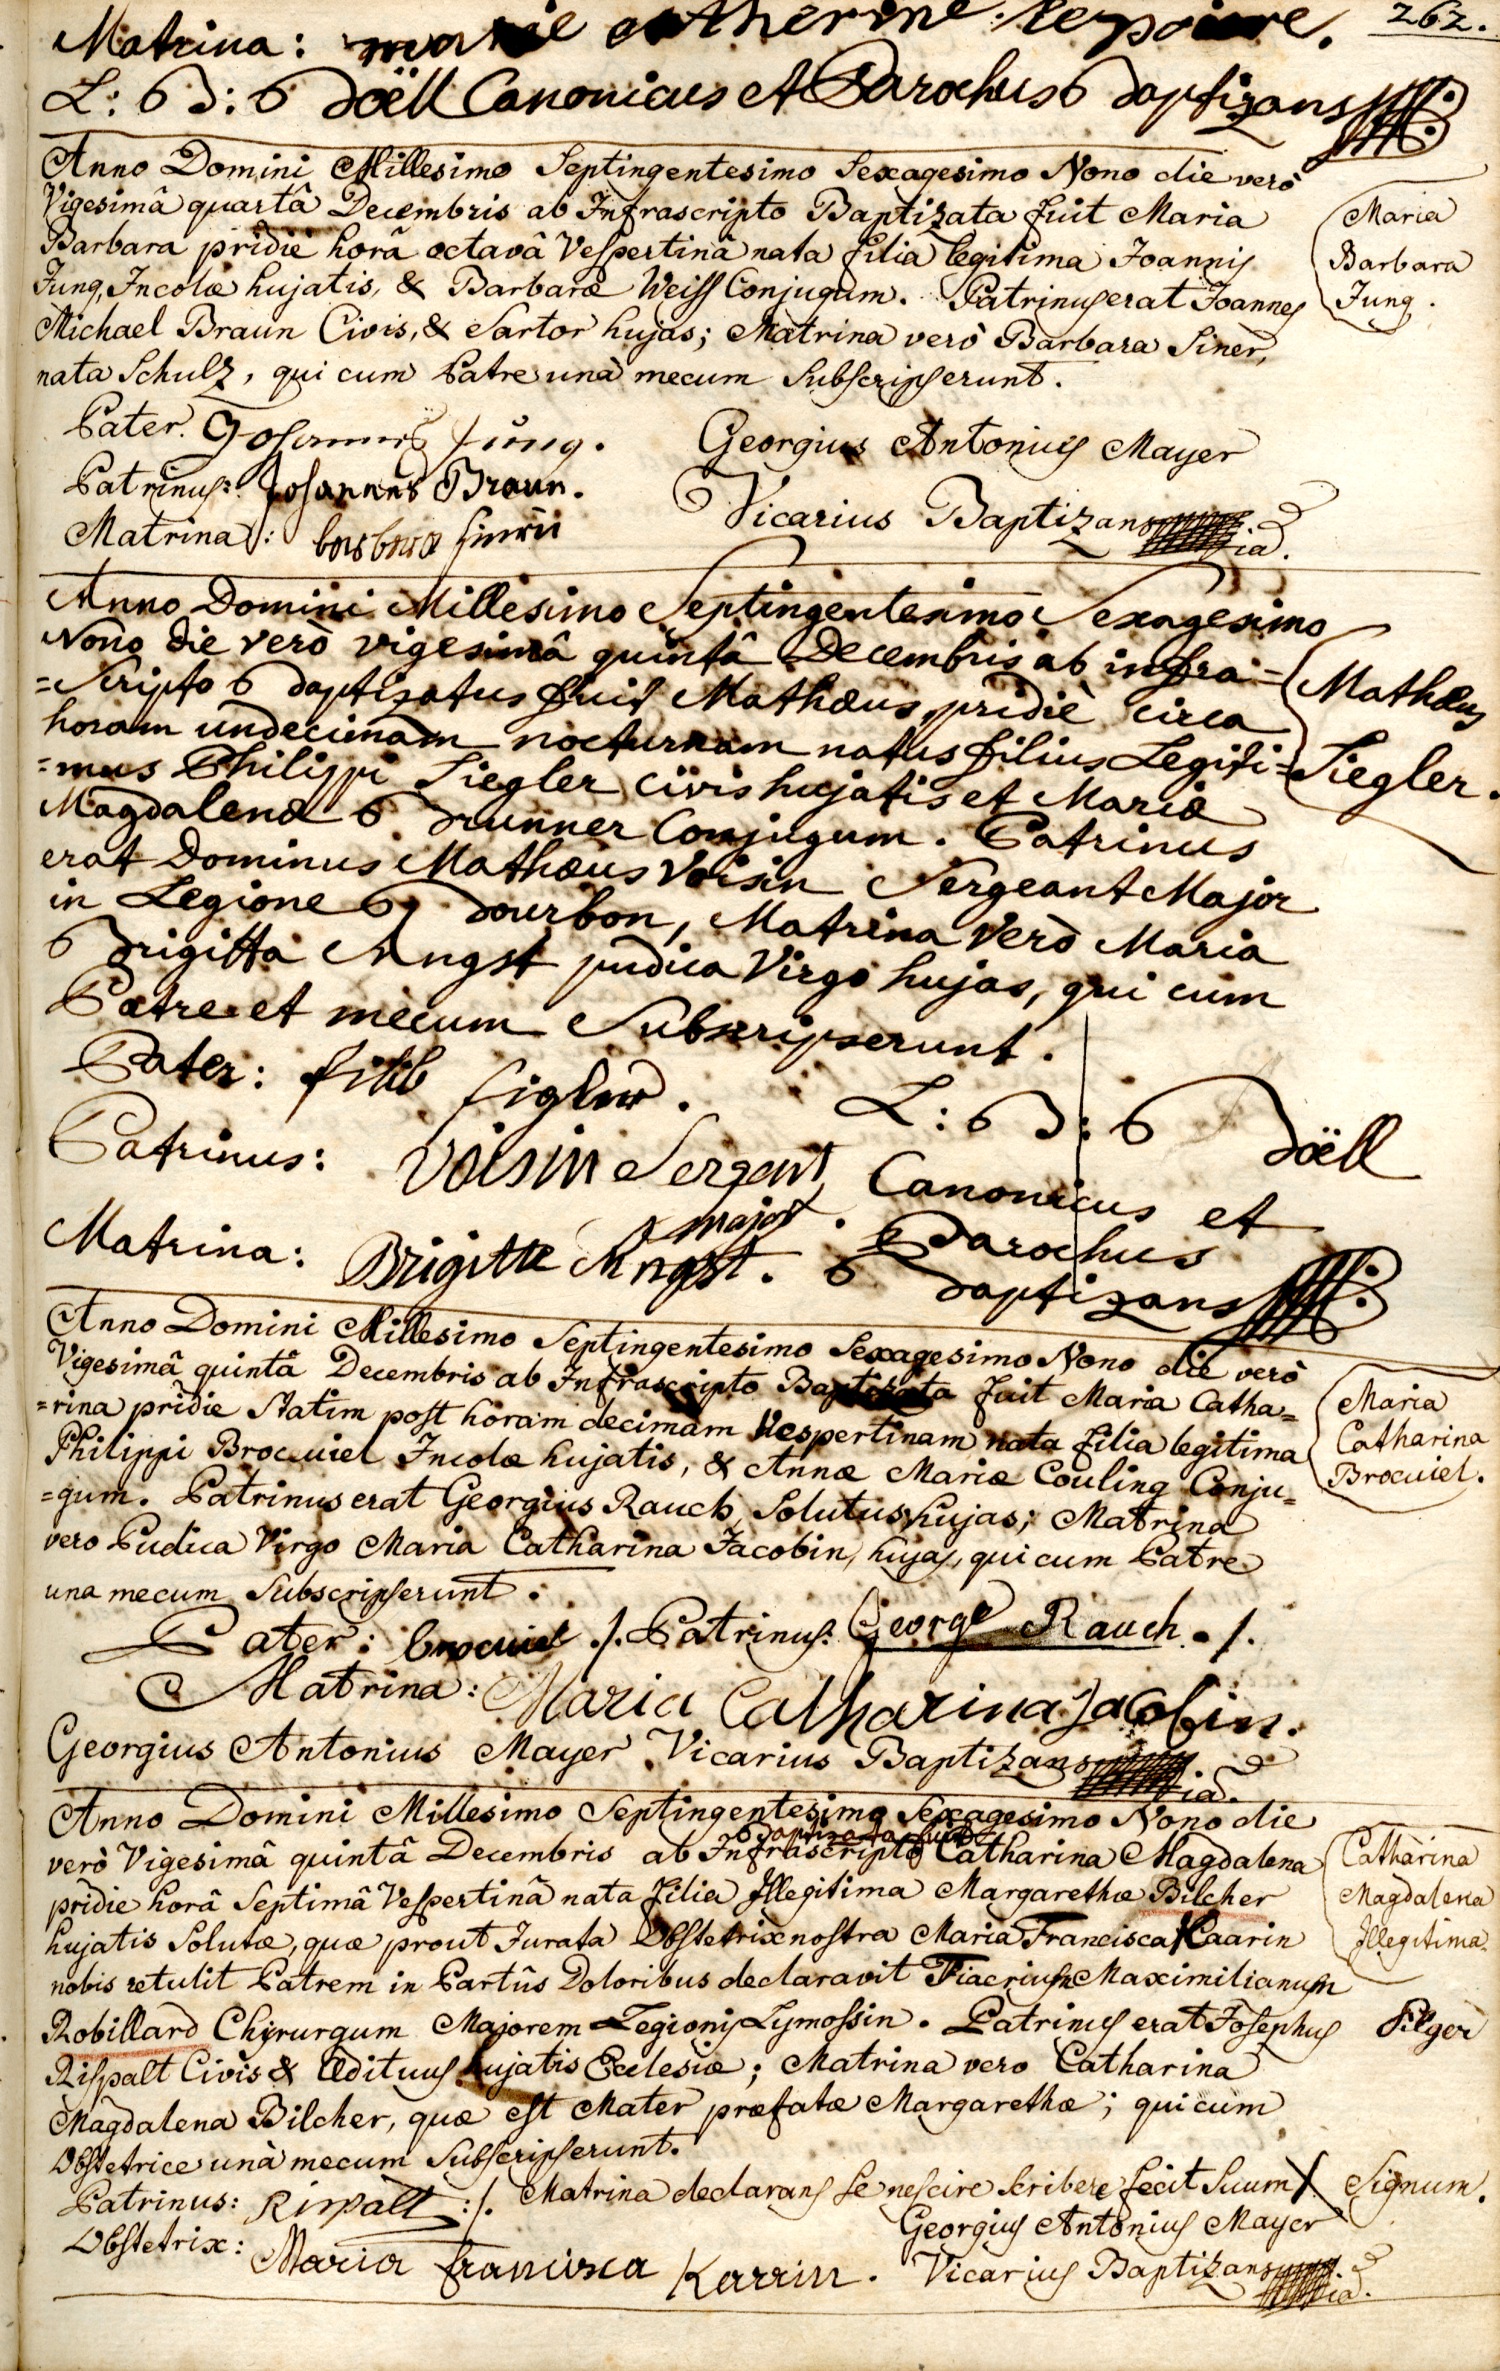 262.
Matrina: marie catherine lepoivre.
L: B: Boëll Canonicus et Parochus Baptizans
Anno Domini Millesimo Septingentesimo Sexagesimo Nono die verò
Vigesimâ quartâ Decembris ab Infrascripto Baptizata fuit Maria
Barbara pridie horâ octavâ Vespertinâ nata filia legitima Joannis
Jung, Incolæ hujatis, & Barbaræ Weiss Conjugum. Patrinus erat Joannes
Michael Braun Civis, & Sartor hujas; Matrina verò Barbara Siner,
nata Schulz, qui cum Patre unà mecum Subscripserunt.
Maria
Barbara
Jung.
Pater. Johannes Jung.
Patrinus: Johannes Braun.
Matrina: barbara sinerin
Georgius Antonius Mayer
Vicarius Baptizans
Anno Domini Millesimo Septingentesimo Sexagesimo
Nono die verò vigesimâ quintâ Decembris ab infra=
=Scripto Baptizatus fuit Mathæus pridiè circa
horam undecimam nocturnam natus filius Legiti=
=mus Philippi Siegler civis hujatis et Mariæ
Magdalenæ Brunner Conjugum. Patrinus
erat Dominus Mathæus Voisin Sergeant Major
in Legione Bourbon, Matrina Verò Maria
Brigitta Angst pudica Virgo hujas, qui cum
Patre et mecum Subscripserunt.
Mathæus
Siegler.
Pater: filib sigler.
Patrinus: Voisin Sergent
major.
Matrina: Brigitte Angst.
L: B: Boëll
Canonicus et
Parochus
Baptizans
Anno Domini Millesimo Septingentesimo Sexagesimo Nono die verò
Vigesimâ quintâ Decembris ab Infrascripto Baptizata fuit Maria Catha=
=rina pridie Statim post horam decimam Vespertinam nata filia legitima
Philippi Brocuiel Incolæ hujatis, & Annæ Mariæ Couling Conju=
=gum. Patrinus erat Georgius Rauch, Solutus hujas; Matrina
vero Pudica Virgo Maria Catharina Jacobin, hujas, qui cum Patre
una mecum Subscripserunt.
Maria
Catharina
Brocuiel.
Pater: brocuiel ./. Patrinus: George Rauch ./.
Matrina: Maria Catharina Jacobin.
Georgius Antonius Mayer Vicarius Baptizans
Anno Domini Millesimo Septingentesimo Sexagesimo Nono die
Baptizata fuit
verò Vigesimâ quintâ Decembris ab Infrascripto Catharina Magdalena
pridie horâ Septimâ Vespertinâ nata filia Illegitima Margarethæ Bilcher
hujatis Solutæ, quæ prout Jurata Obstetrix nostra Maria Francisca Kaarin
nobis retulit Patrem in Partûs Doloribus declaravit Fiacrium Maximilianum
Robillard Chyrurgum Majorem Legionis Lymossin. Patrinus erat Josephus
Rispalt Civis & Ædituus hujatis Ecclesiæ; Matrina vero Catharina
Magdalena Bilcher, quæ est Mater præfatæ Margarethæ; qui cum
Obstetrice unà mecum Subscripserunt.
Catharina
Magdalena
Illegitima.
Pilger
Patrinus: Rispalt :/. Matrina declarans se nescire scribere fecit Suum X Signum.
Obstetrix: Maria francisca Karrin.
Georgius Antonius Mayer
Vicarius Baptizans